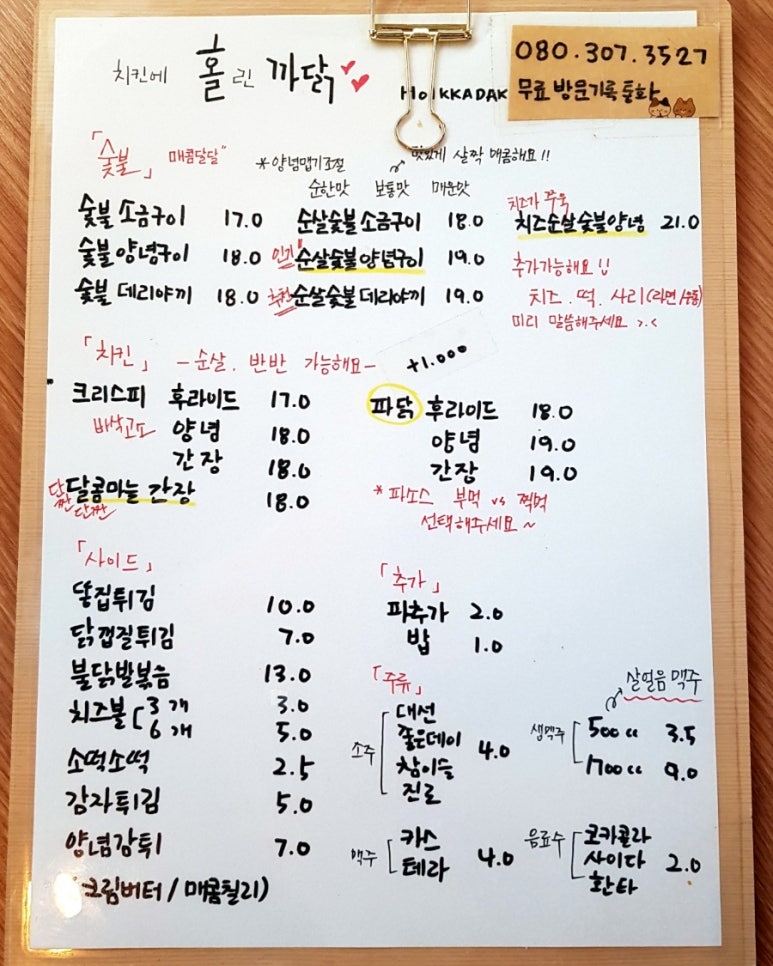 치킨에 홀린 까닭
HOLKKADAK
080.307.3527
무료 방문기록 통화
「숯불」 매콤달달"
*양념맵기조절 맛있게 살짝 매콤해요!!
순한맛 보통맛 매운맛
숯불 소금구이 17.0
숯불 양념구이 18.0
숯불 데리야끼 18.0
순살숯불소금구이 18.0
인기" 순살숯불양념구이 19.0
추천 순살숯불데리야끼 19.0
치즈가 쭈욱
치즈순살숯불양념 21.0
추가가능해요!!
치즈.떡.사리(라면/우동)
미리 말씀해주세요 >.<
「치킨」 -순살.반반 가능해요- +1.000
크리스피 후라이드 17.0
바삭고소 양념 18.0
간장 18.0
단짠단짠 달콤마늘 간장 18.0
파닭 후라이드 18.0
양념 19.0
간장 19.0
*파소스 부먹 vs 찍먹
선택해주세요~
「사이드」
똥집튀김 10.0
닭껍질튀김 7.0
불닭발볶음 13.0
치즈볼 3개 3.0
6개 5.0
소떡소떡 2.5
감자튀김 5.0
양념감튀 7.0
(크림버터/매콤칠리)
「추가」
파추가 2.0
밥 1.0
「주류」
소주 대선 좋은데이 참이슬 진로 4.0
맥주 카스 테라 4.0
살얼음 맥주
생맥주 500cc 3.5
1700cc 9.0
음료수 코카콜라 사이다 환타 2.0